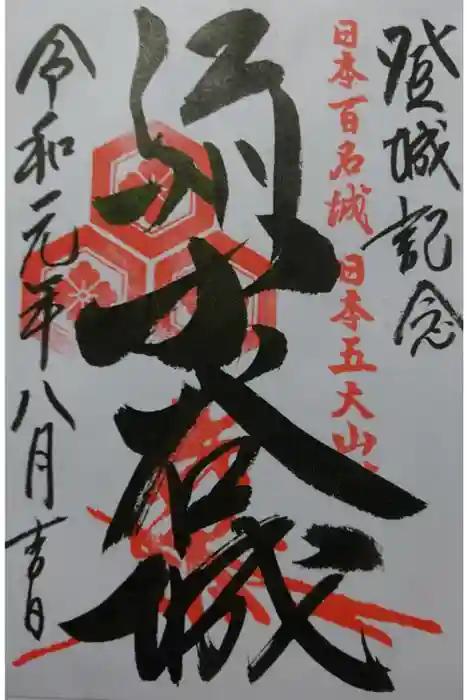 登城記念
日本百名城 日本五大山城
小谷城
令和元年八月吉日